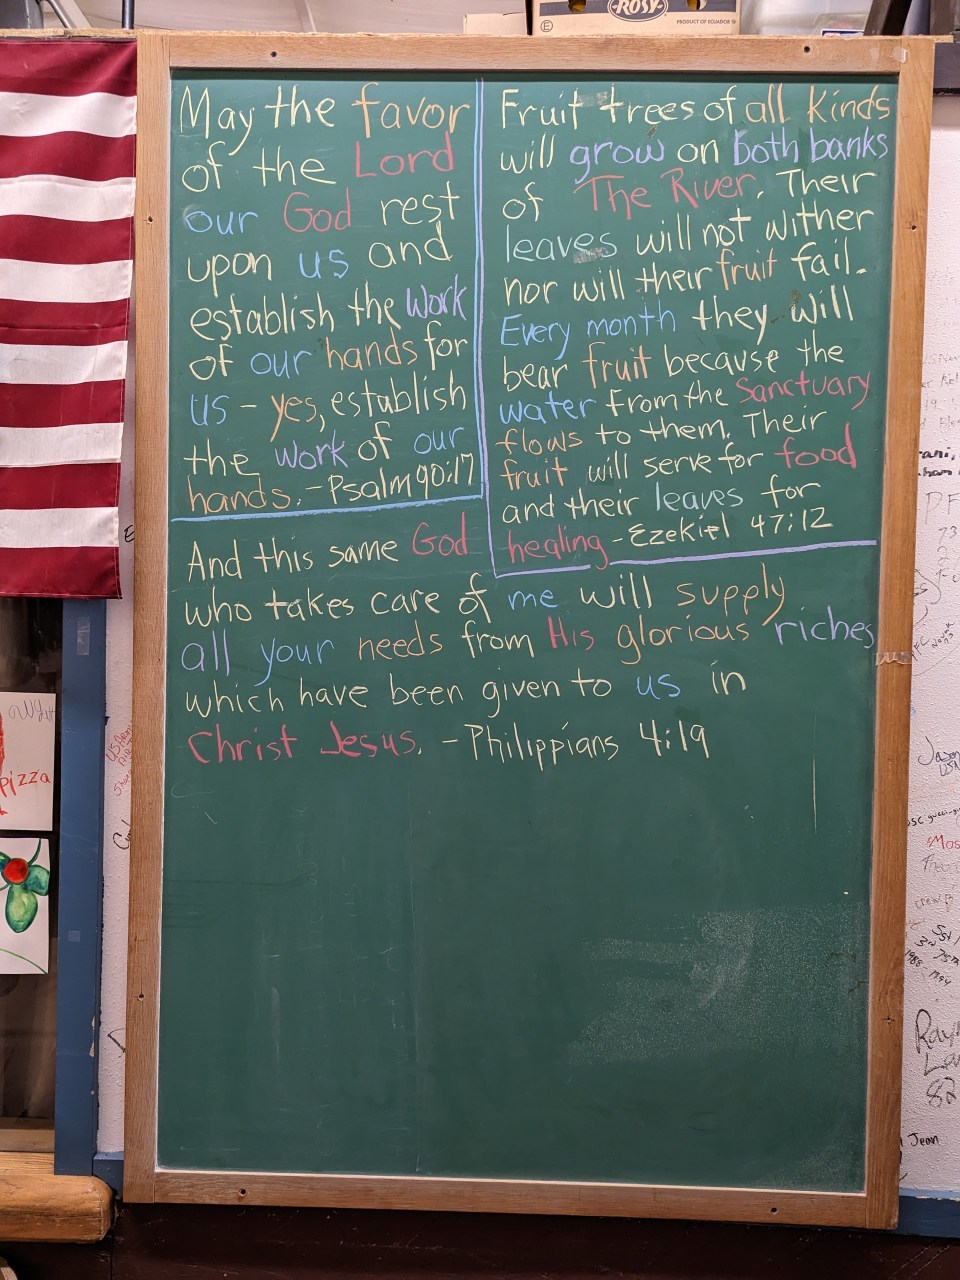 ROSY
PRODUCT OF ECUADOR
May the favor
of the Lord
our God rest
upon us and
establish the work
of our hands for
us - yes, establish
the work of our
hands. - Psalm 90:17
Fruit trees of all kinds
will grow on both banks
of The River. Their
leaves will not wither
nor will their fruit fail.
Every month they will
bear fruit because the
water from the Sanctuary
flows to them. Their
fruit will serve for food
and their leaves for
healing - Ezekiel 47:12
And this same God
who takes care of me will supply
all your needs from His glorious riches
which have been given to us in
Christ Jesus. - Philippians 4:19
Pizza
Jean
82